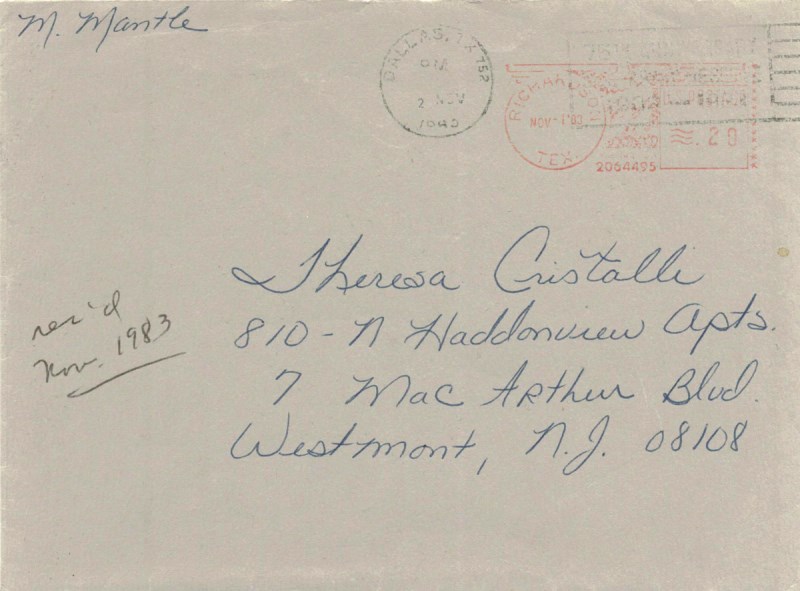 M. Mantle
DALLAS, TX 752
2 NOV
RICHARDSON
NOV-1'83
TEX.
.20
2064495
Theresa Cristalli
810-N Haddonview Apts.
7 Mac Arthur Blvd.
Westmont, N.J. 08108
rec'd
Nov. 1983